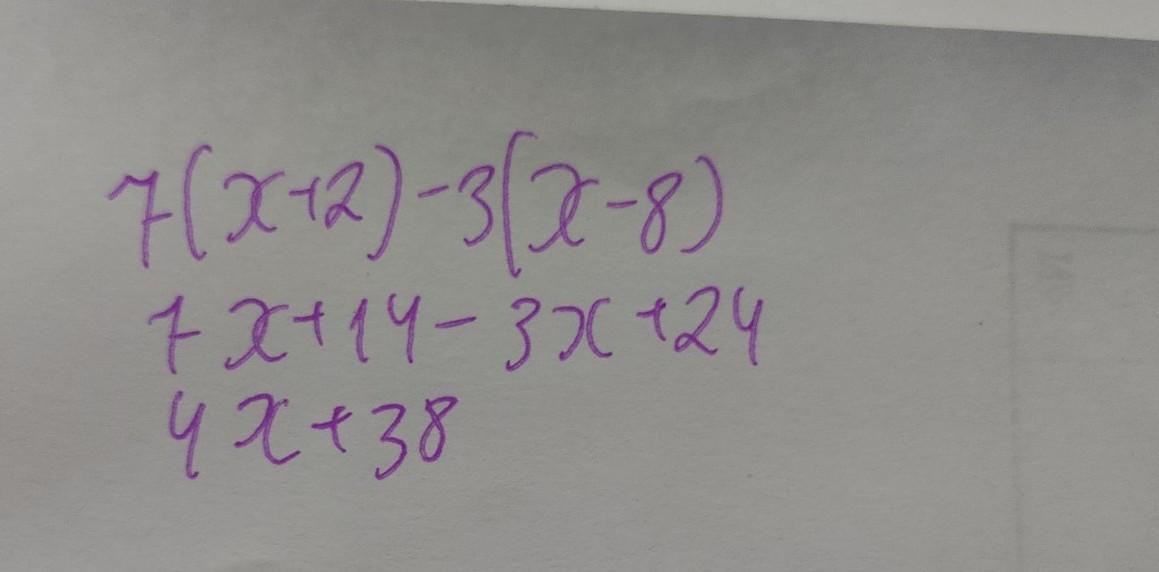 7(x+2)-3(x-8)
7x+14-3x+24
4x+38